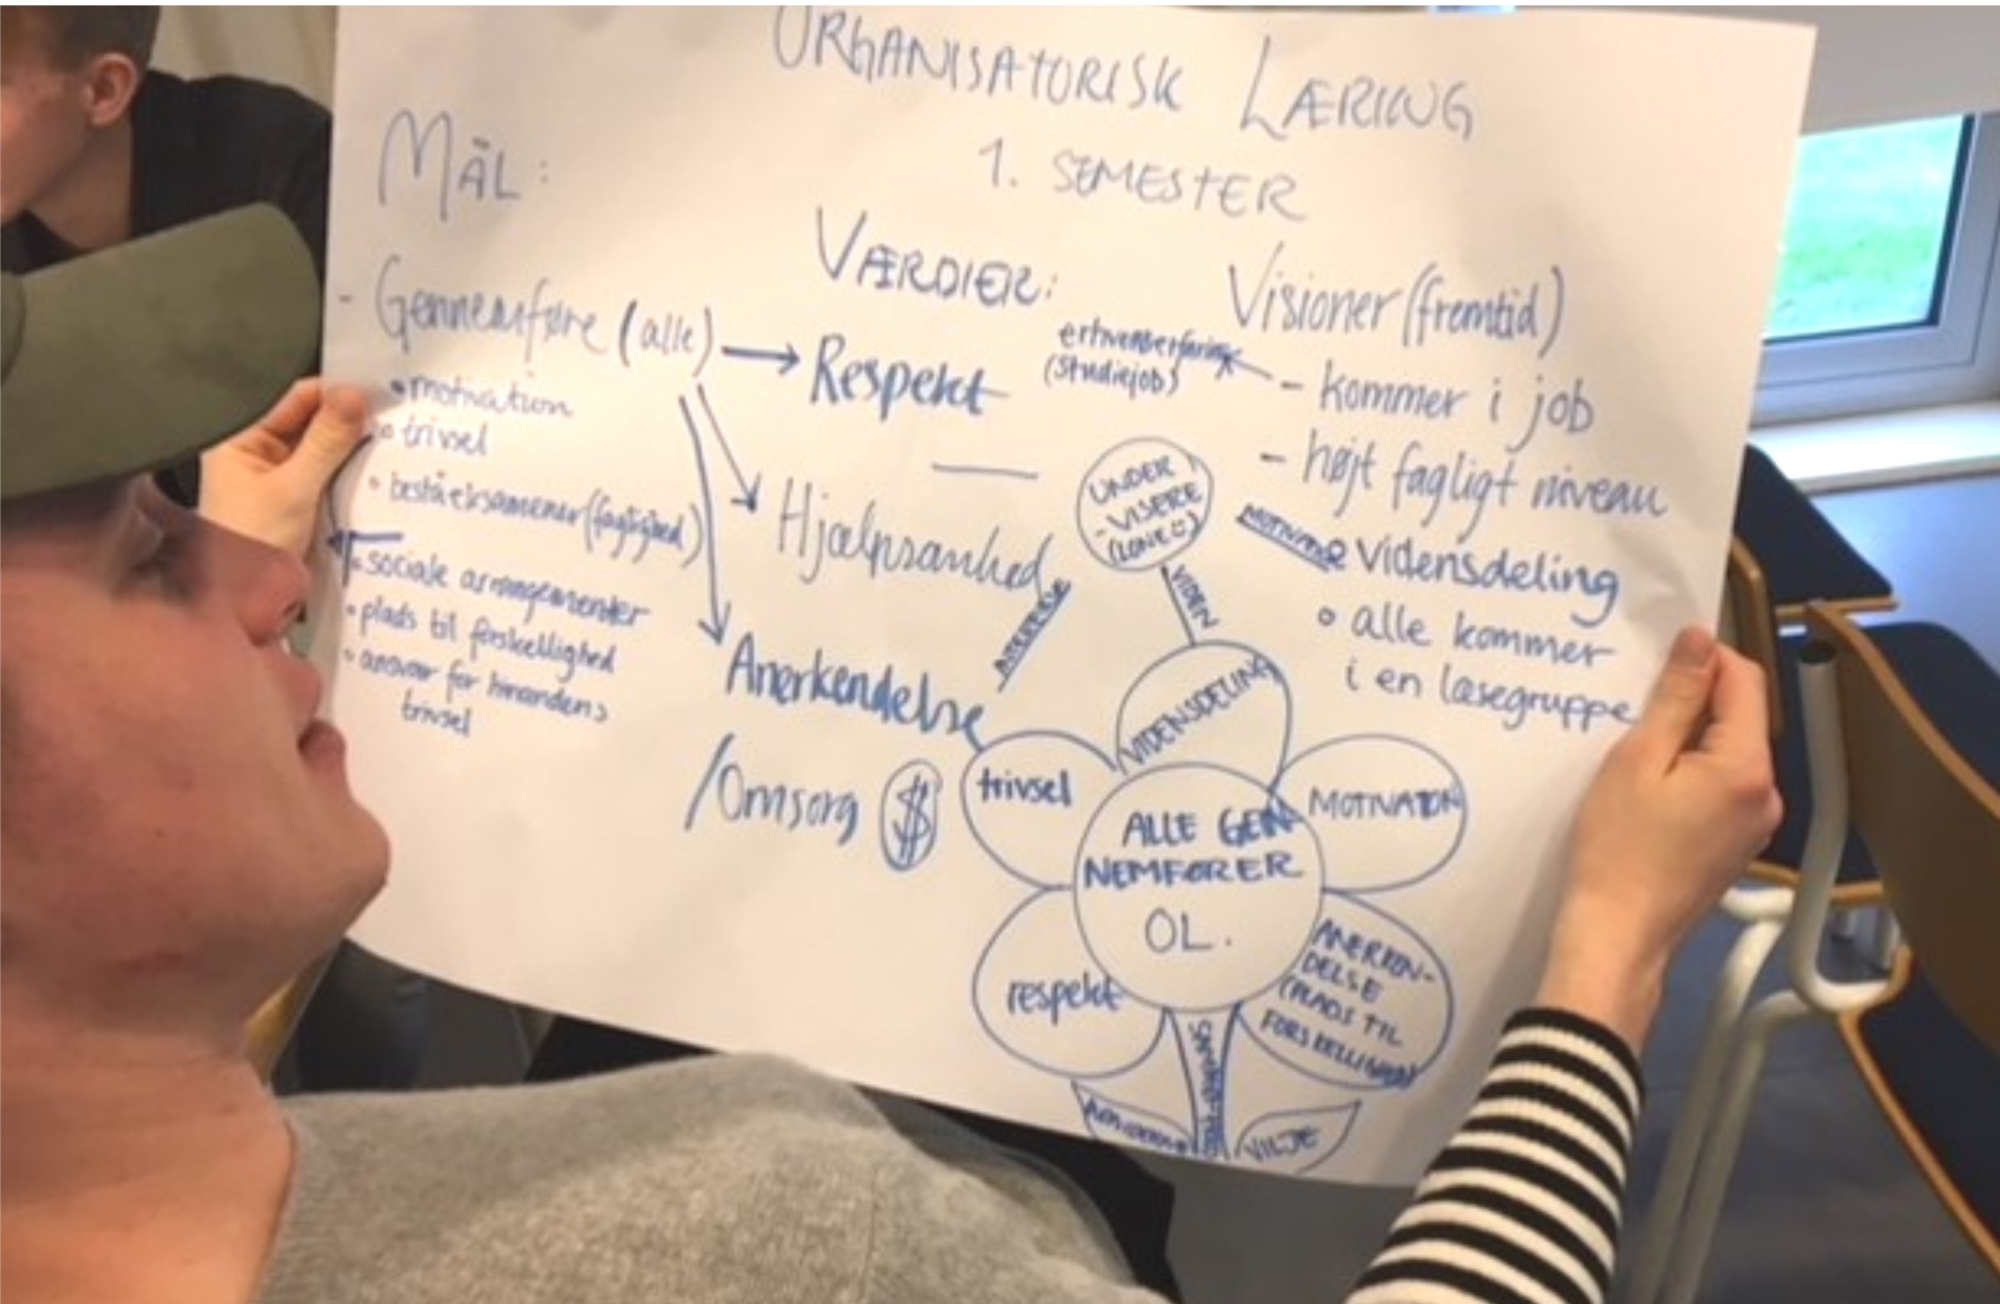 ORGANISATORISK LÆRING
1. SEMESTER
MÅL:
- Gennemføre (alle)
• motivation
• trivsel
• bestå eksamener (faglighed)
• sociale arrangementer
• plads til forskellighed
• ansvar for hinandens
trivsel
VÆRDIER:
Respekt
Hjælpsomhed
Anerkendelse
/Omsorg $
Visioner (fremtid)
erhvervserfaring
(studiejob)
- kommer i job
- højt fagligt niveau
Vidensdeling
• alle kommer
i en læsegruppe
UNDER
-VISERE
(LONE☺)
VIDEN
VIDENSDELING
trivsel
MOTIVATION
ALLE GEN-
NEMFØRER
OL.
respekt
ANERKEN-
DELSE
(PLADS TIL
FORSKELLIGHED)
VILJE